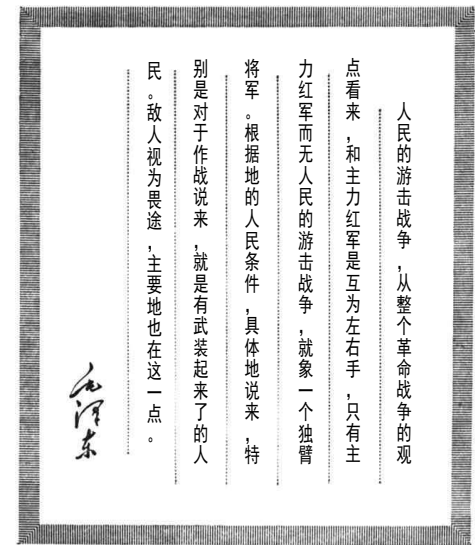 人民的游击战争，从整个革命战争的观
点看来，和主力红军是互为左右手，只有主
力红军而无人民的游击战争，就象一个独臂
将军。根据地的人民条件，具体地说来，特
别是对于作战说来，就是有武装起来了的人
民。敌人视为畏途，主要地也在这一点。
毛泽东